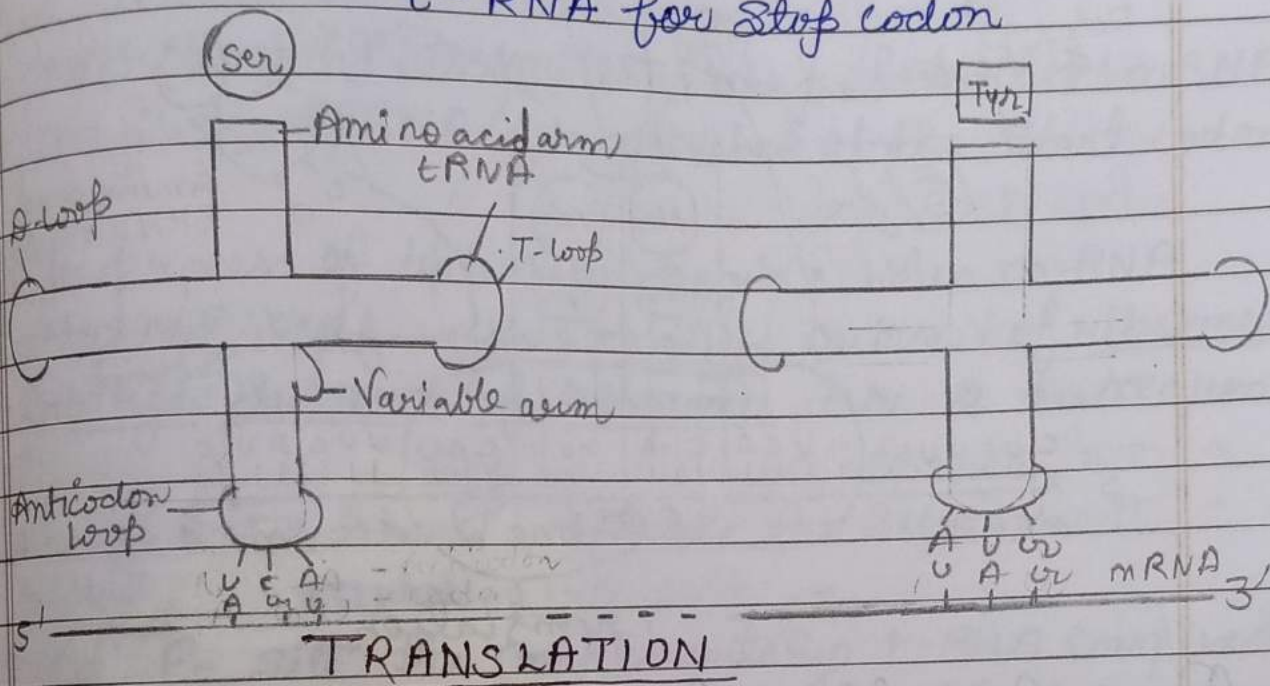 RNA for Stop codon
Ser
Tyr
Amino acid arm
tRNA
T-loop
Variable arm
Anticodon
loop
U C A
A G U
A U
U A
mRNA
5'
3'
TRANSLATION